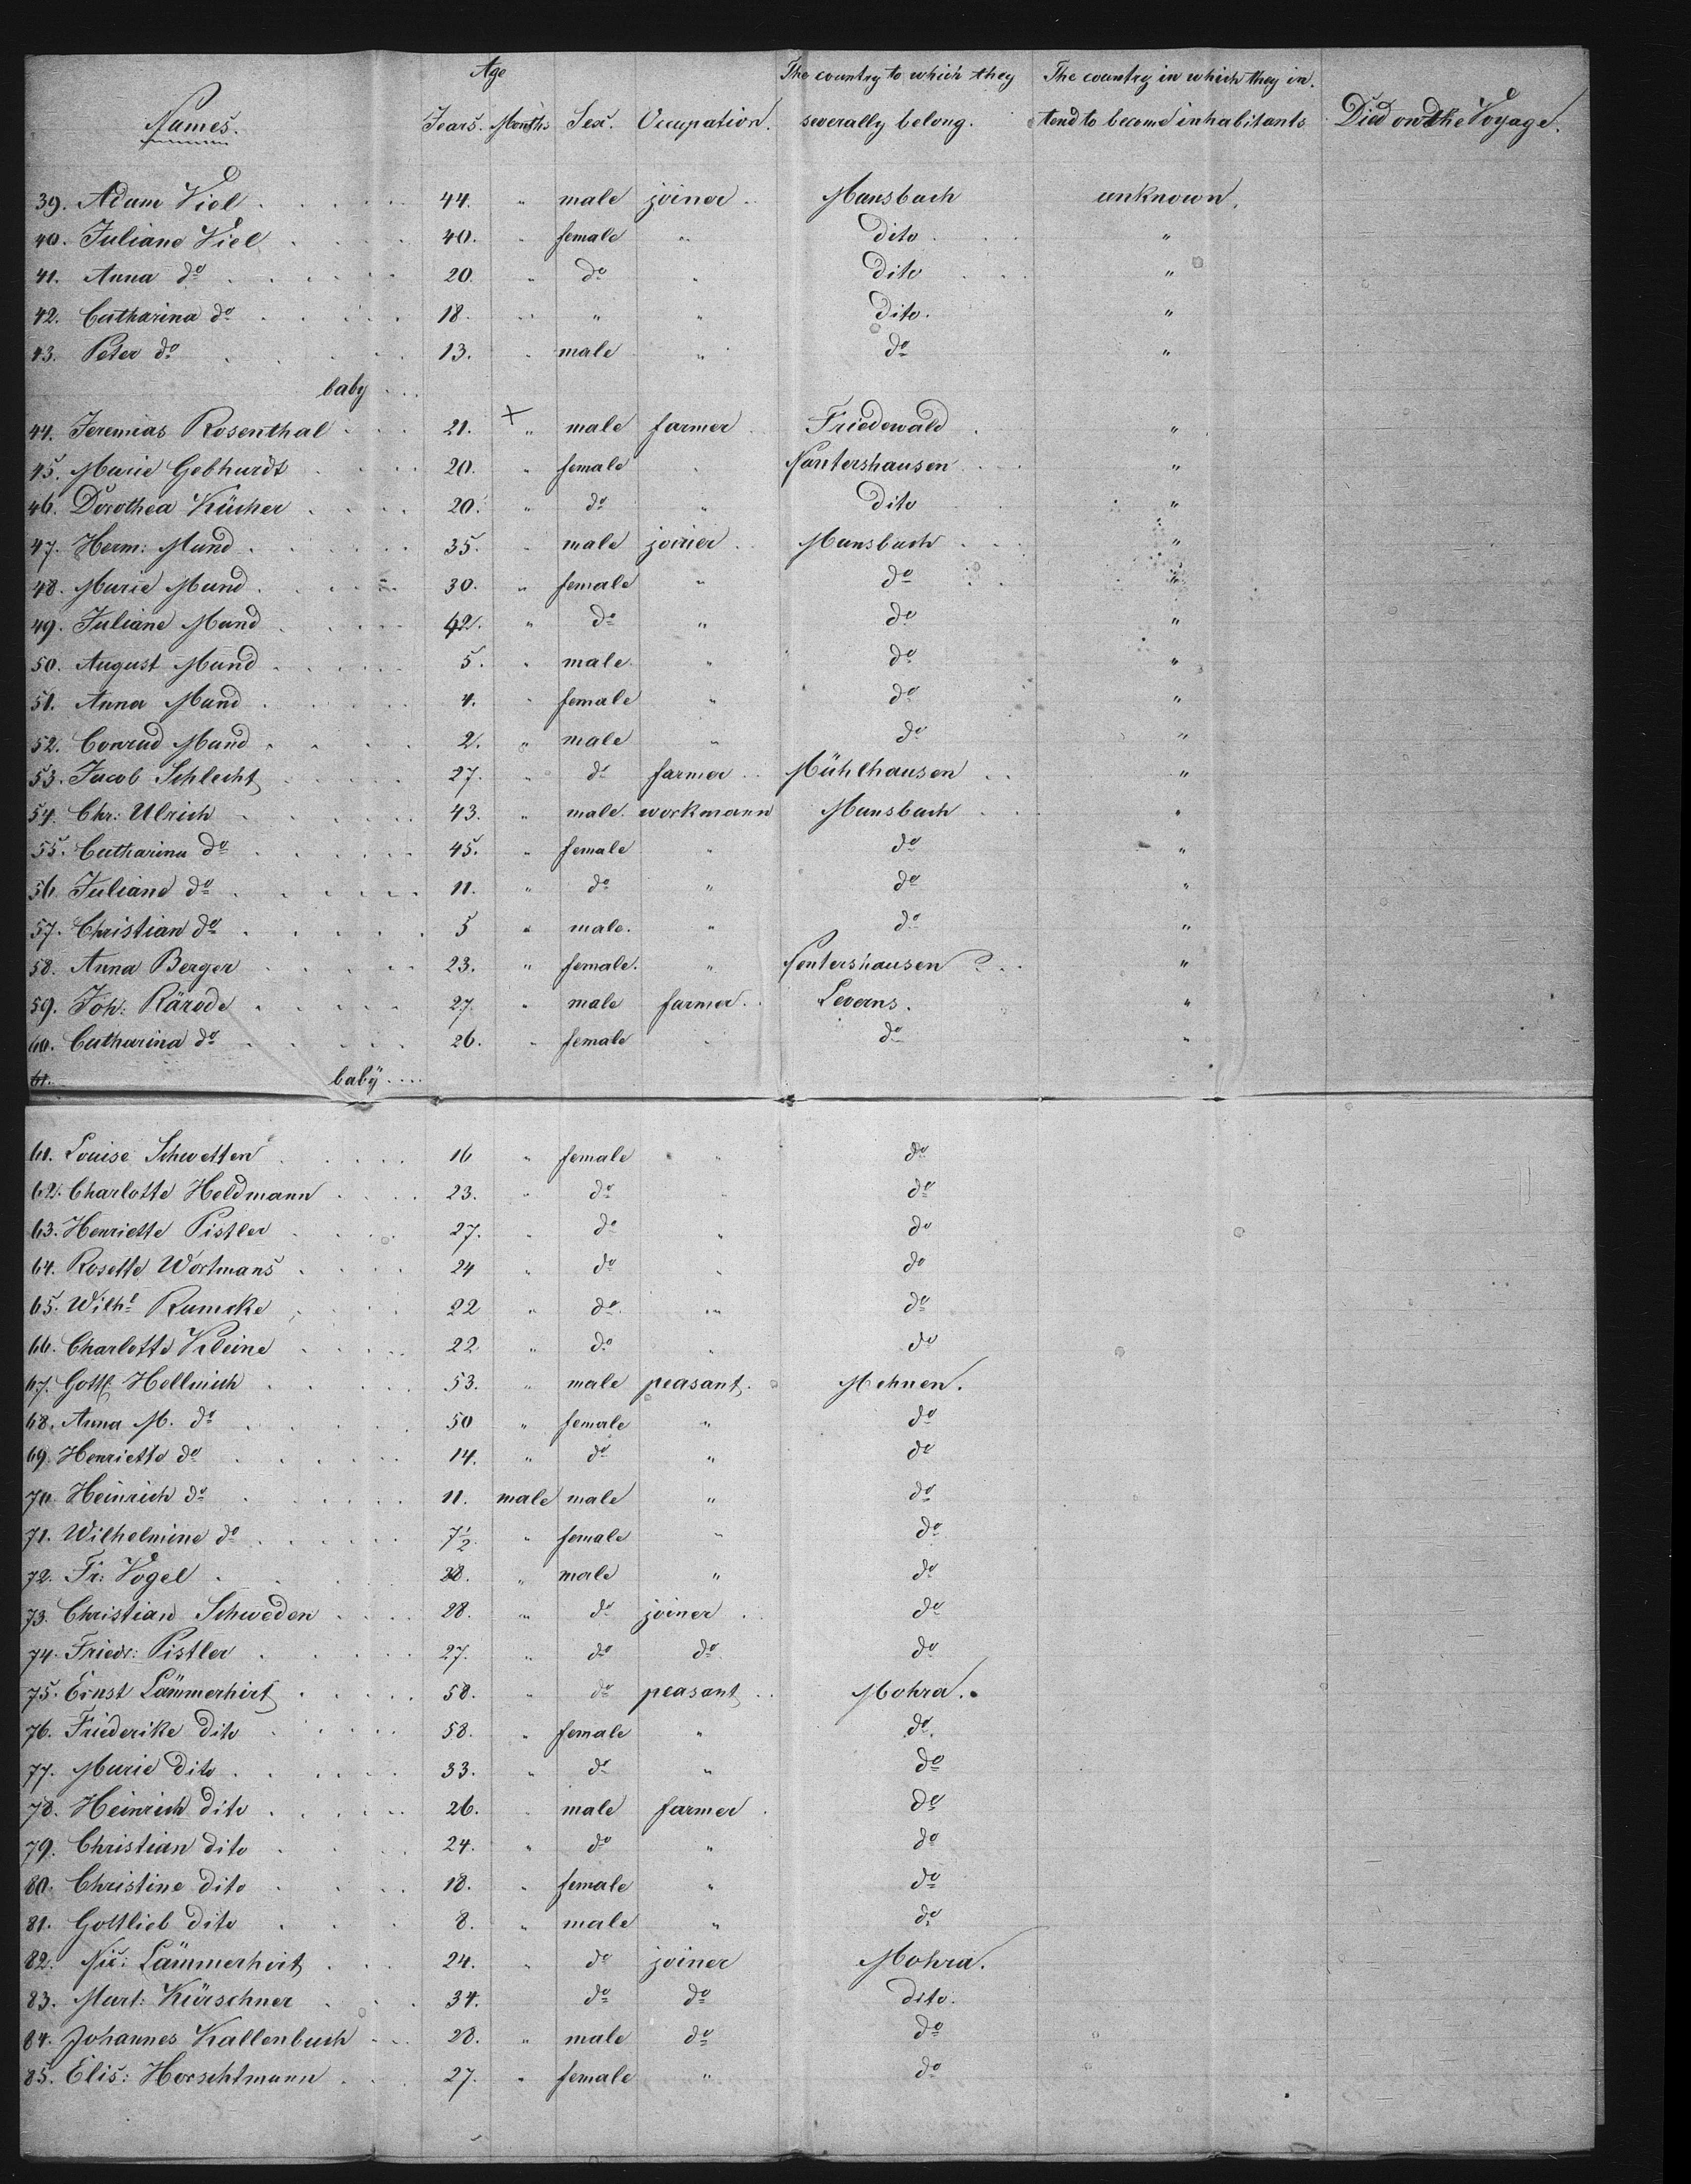 Age The country to which they The country in which they in-
Names. Years. Months Sex. Occupation. severally belong. tend to become inhabitants Died on the Voyage.
39. Adam Viel 44. " male joiner Mansbach unknown.
40. Juliane Viel 40. " female " dito "
41. Anna do 20. " do " dito "
42. Catharina do 18. " " " dito. "
43. Peter do 13. " male " do "
baby
44. Jeremias Rosenthal 21. × " male farmer Friedewald "
45. Marie Gebhardt 20. " female " Nantershausen "
46. Dorothea 20. " do " dito "
47. Herm: Mand 35. " male joiner Mansbach "
48. Marie Mand 30. " female " do "
49. Juliane Mand 42. " do " do "
50. August Mand 5. " male " do "
51. Anna Mand 4. " female " do "
52. Conrad Mand 2. " male " do "
53. Jacob Schlecht 27. " do farmer Mühlhausen "
54. Chr: Ulrich 43. " male. workmann Mansbach "
55. Catharina do 45. " female " do "
56. Juliane do 11. " do " do "
57. Christian do 5 " male. " do "
58. Anna Berger 23. " female. " ?. "
59. Joh: Rärode 27. " male farmer Leverns. "
60. Catharina do 26. " female " do "
61. baby
61. Louise Schwetten 16 " female " do
62. Charlotte Heldmann 23. " do " do
63. Henriette Pistler 27. " do " do
64. Rosette Wortmans 24 " do " do
65. Wilh: Rumcke 22 " do " do
66. Charlotte Kleine 22 " do " do
67. Gottl. Hellmich 53. " male peasant. Mehnen.
68. Anna M. do 50 " female " do
69. Henriette do 14. " do " do
70. Heinrich do 11. male male " do
71. Wilhelmine do 7½ " female " do
72. Fr: Vogel 28. " male " do
73. Christian Schweden 28. " do joiner do
74. Friedr: Pistler 27. " do do do
75. Ernst Lämmerhirt 58. " do peasant Mohra.
76. Friederike dito 58. " female " do.
77. Marie dito 33. " do " do
78. Heinrich dito 26. " male farmer do
79. Christian dito 24. " do " do
80. Christine dito 18. " female " do
81. Gottlieb dito 8. " male " do
82. Nic: Lämmerhirt 24. " do joiner Mohra.
83. Mart: Kürschner 34. do do dito.
84. Johannes Kallenbach 28. " male do do
85. Elis: Horschtmann 27. " female " do